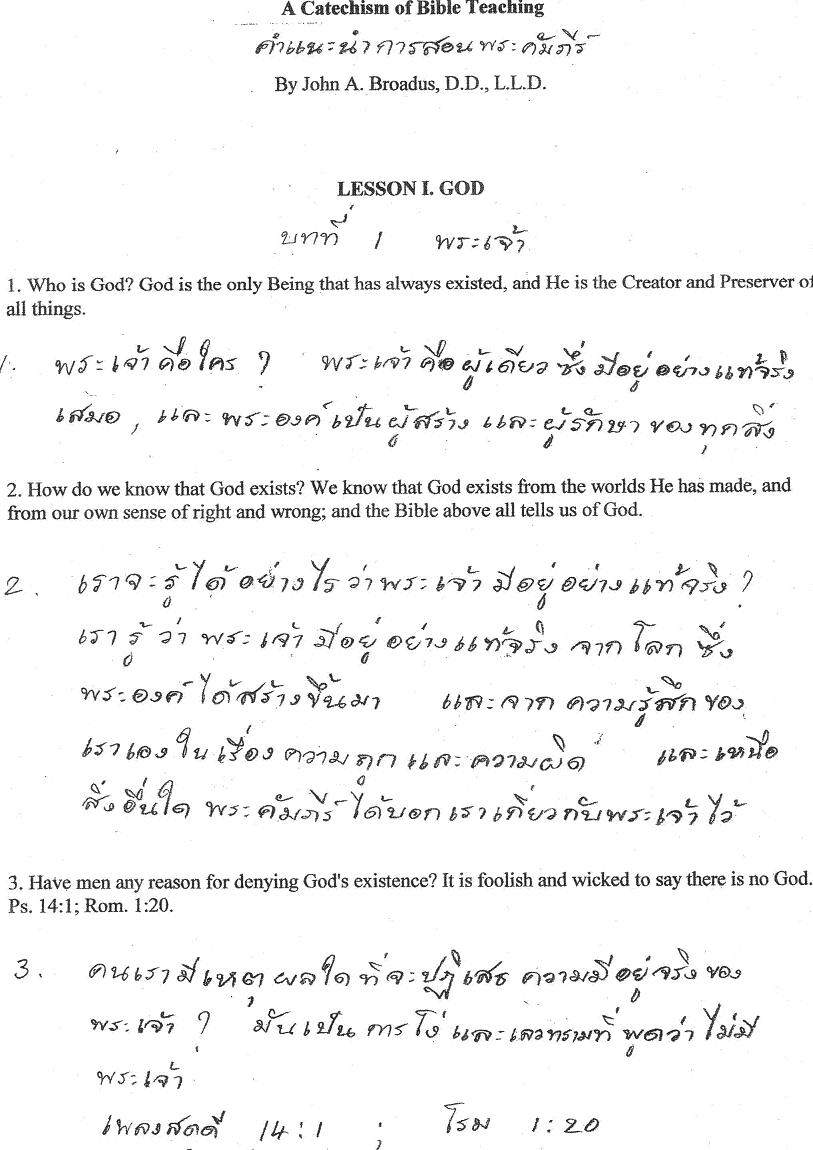 A Catechism of Bible Teaching
คำแนะนำการสอนพระคัมภีร์
By John A. Broadus, D.D., L.L.D.
LESSON I. GOD
บทที่ 1 พระเจ้า
1. Who is God? God is the only Being that has always existed, and He is the Creator and Preserver of
all things.
1. พระเจ้าคือใคร ? พระเจ้าคือผู้เดียวซึ่งมีอยู่อย่างแท้จริง
เสมอ , และพระองค์เป็นผู้สร้างและผู้รักษาของทุกสิ่ง
2. How do we know that God exists? We know that God exists from the worlds He has made, and
from our own sense of right and wrong; and the Bible above all tells us of God.
2. เราจะรู้ได้อย่างไรว่าพระเจ้ามีอยู่อย่างแท้จริง ?
เรารู้ว่าพระเจ้ามีอยู่อย่างแท้จริง จากโลกซึ่ง
พระองค์ได้สร้างขึ้นมา และจากความรู้สึกของ
เราเองในเรื่องความถูกและความผิด และเหนือ
สิ่งอื่นใด พระคัมภีร์ได้บอกเราเกี่ยวกับพระเจ้าไว้
3. Have men any reason for denying God's existence? It is foolish and wicked to say there is no God.
Ps. 14:1; Rom. 1:20.
3. คนเรามีเหตุผลใดที่จะปฏิเสธความมีอยู่จริงของ
พระเจ้า ? มันเป็นการโง่และเลวทรามที่พูดว่าไม่มี
พระเจ้า
เพลงสดดี 14:1 ; โรม 1:20